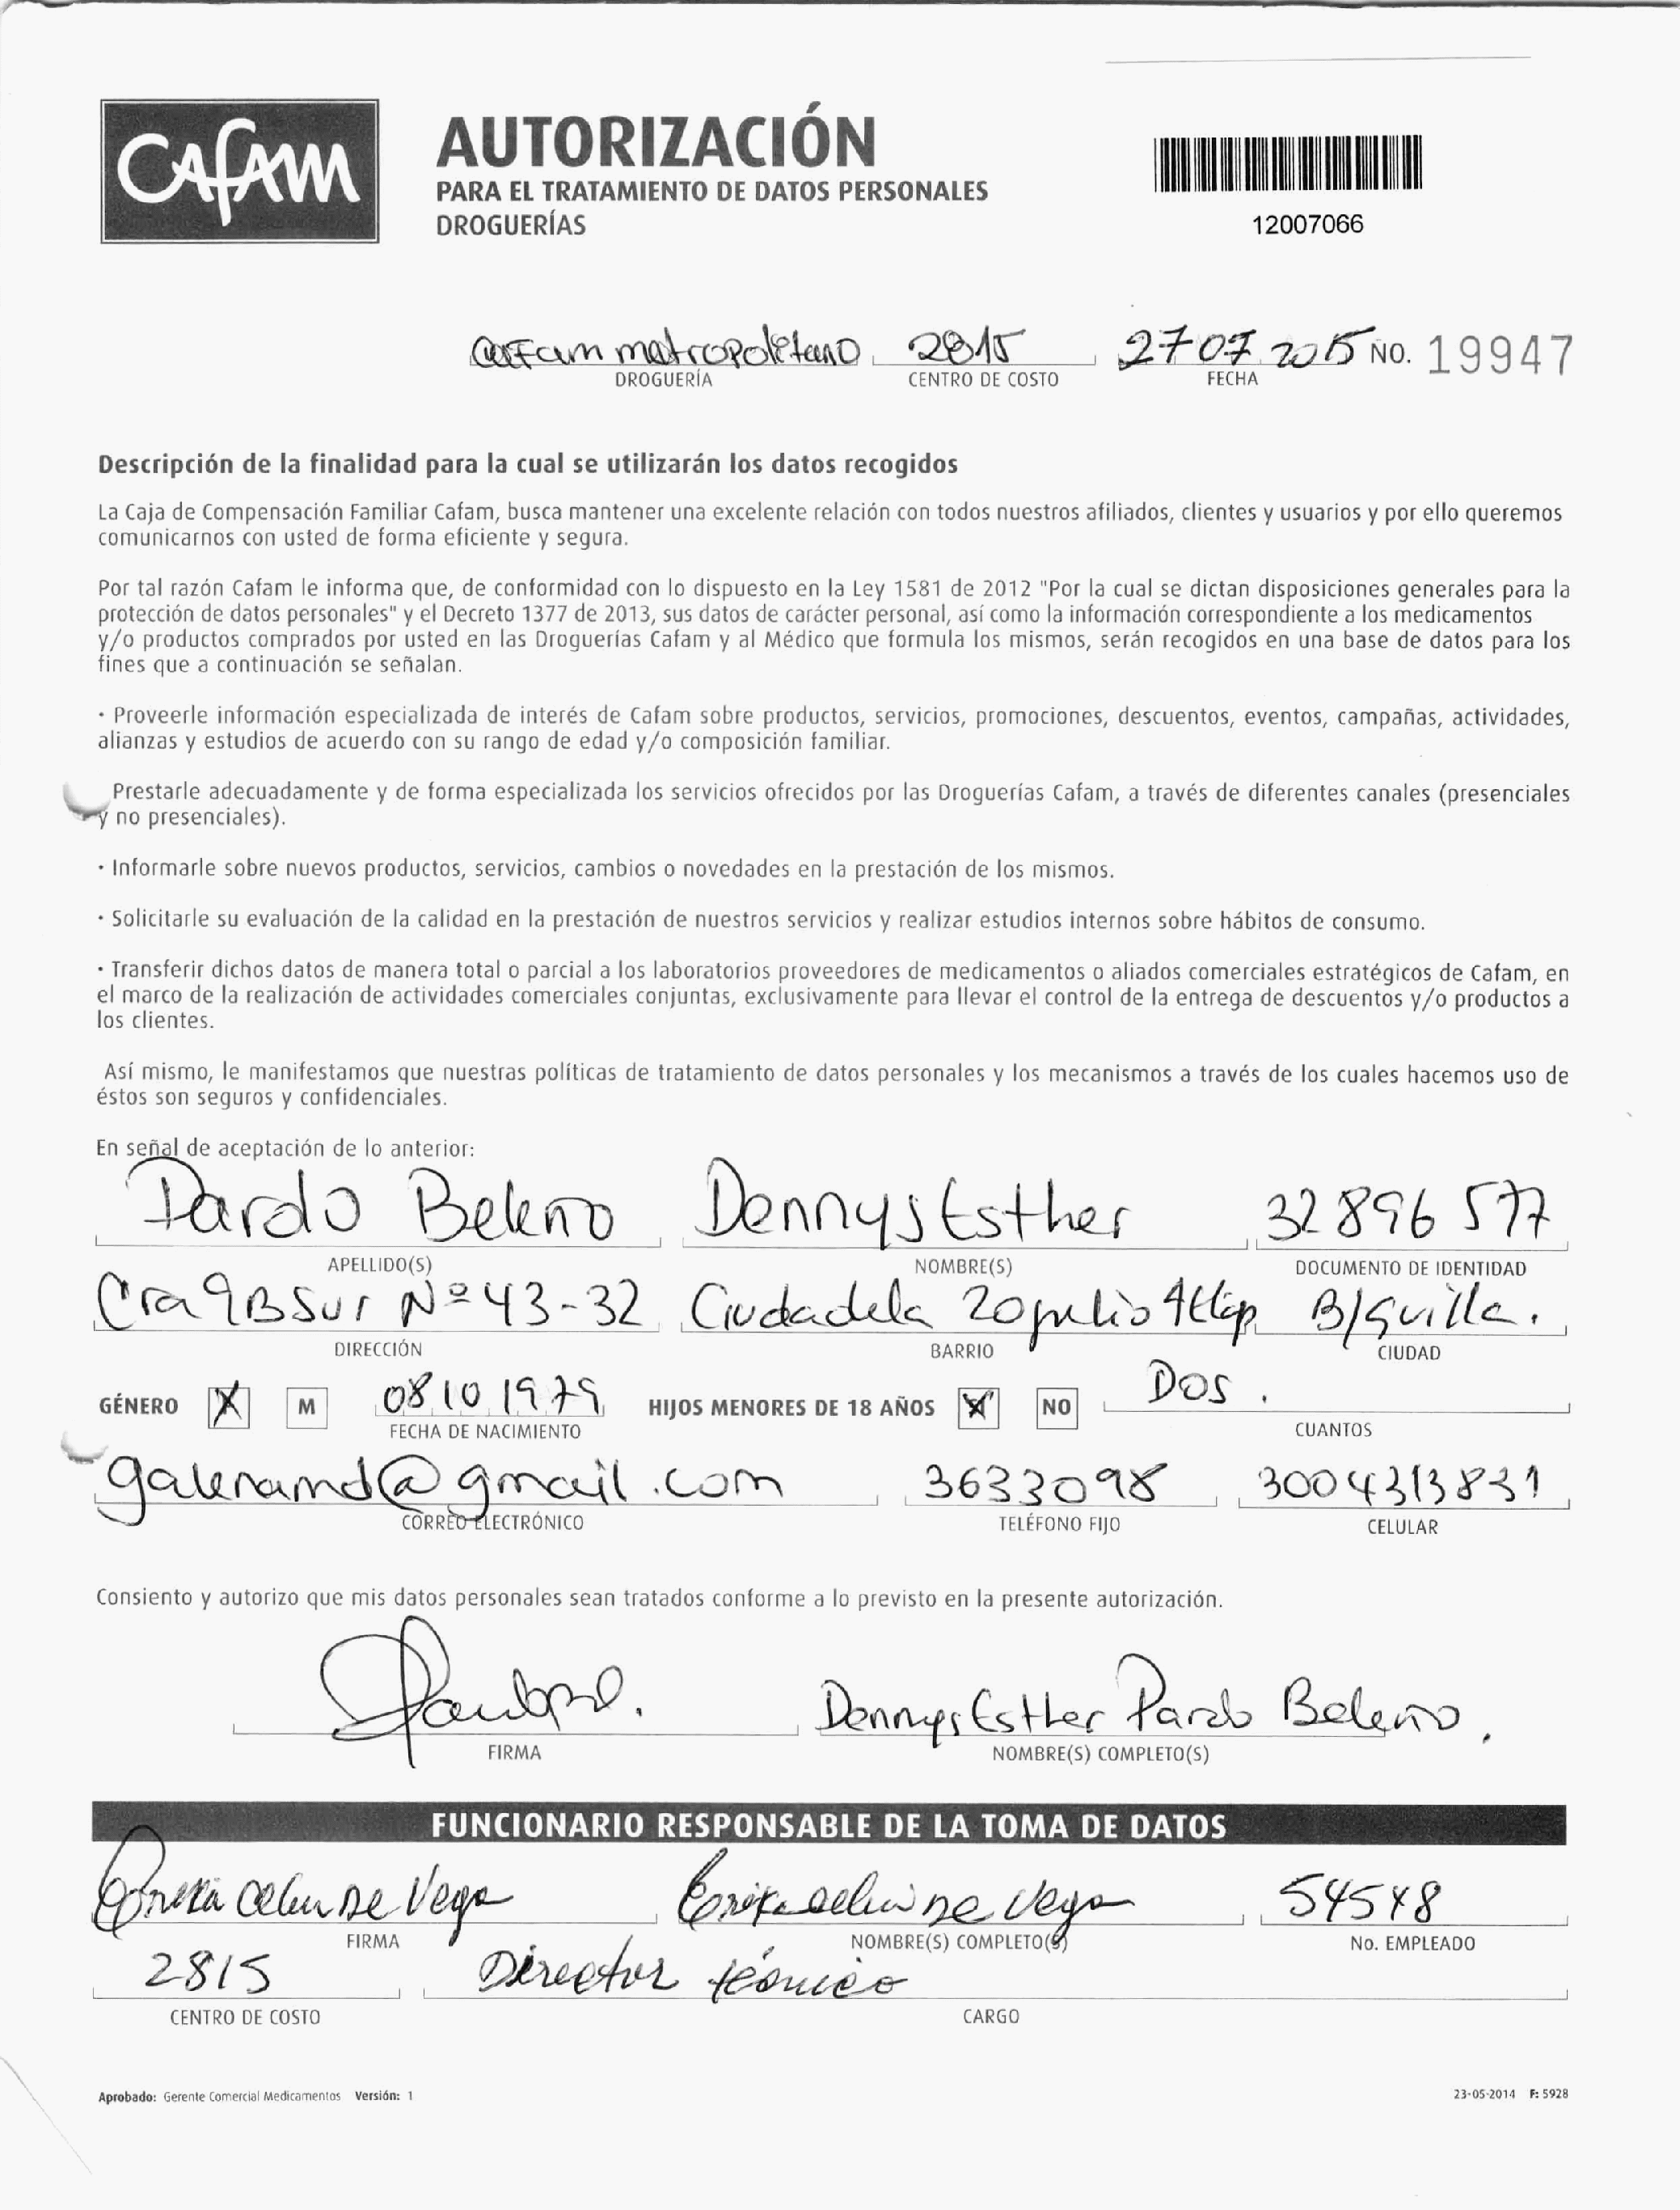 CAFAM
AUTORIZACIÓN
PARA EL TRATAMIENTO DE DATOS PERSONALES
DROGUERÍAS
12007066
Cafam metropolitano 2815 27 07 2015 NO. 19947
DROGUERÍA CENTRO DE COSTO FECHA
Descripción de la finalidad para la cual se utilizarán los datos recogidos
La Caja de Compensación Familiar Cafam, busca mantener una excelente relación con todos nuestros afiliados, clientes y usuarios y por ello queremos
comunicarnos con usted de forma eficiente y segura.
Por tal razón Cafam le informa que, de conformidad con lo dispuesto en la Ley 1581 de 2012 "Por la cual se dictan disposiciones generales para la
protección de datos personales" y el Decreto 1377 de 2013, sus datos de carácter personal, así como la información correspondiente a los medicamentos
y/o productos comprados por usted en las Droguerías Cafam y al Médico que formula los mismos, serán recogidos en una base de datos para los
fines que a continuación se señalan.
· Proveerle información especializada de interés de Cafam sobre productos, servicios, promociones, descuentos, eventos, campañas, actividades,
alianzas y estudios de acuerdo con su rango de edad y/o composición familiar.
Prestarle adecuadamente y de forma especializada los servicios ofrecidos por las Droguerías Cafam, a través de diferentes canales (presenciales
y no presenciales).
· Informarle sobre nuevos productos, servicios, cambios o novedades en la prestación de los mismos.
· Solicitarle su evaluación de la calidad en la prestación de nuestros servicios y realizar estudios internos sobre hábitos de consumo.
· Transferir dichos datos de manera total o parcial a los laboratorios proveedores de medicamentos o aliados comerciales estratégicos de Cafam, en
el marco de la realización de actividades comerciales conjuntas, exclusivamente para llevar el control de la entrega de descuentos y/o productos a
los clientes.
Así mismo, le manifestamos que nuestras políticas de tratamiento de datos personales y los mecanismos a través de los cuales hacemos uso de
éstos son seguros y confidenciales.
En señal de aceptación de lo anterior:
Pardo Beleno Dennys Esther 32 896 577
APELLIDO(S) NOMBRE(S) DOCUMENTO DE IDENTIDAD
Cra 9B Sur Nº 43-32 Ciudadela 20 julio B/quilla.
DIRECCIÓN BARRIO CIUDAD
GÉNERO X M 08 10 1979 HIJOS MENORES DE 18 AÑOS X NO Dos.
FECHA DE NACIMIENTO CUANTOS
galenamd@gmail.com 3633098 3004313831
CORREO ELECTRÓNICO TELÉFONO FIJO CELULAR
Consiento y autorizo que mis datos personales sean tratados conforme a lo previsto en la presente autorización.
Dennys Esther Pardo Beleño.
FIRMA NOMBRE(S) COMPLETO(S)
FUNCIONARIO RESPONSABLE DE LA TOMA DE DATOS
De Vega De Vega 54548
FIRMA NOMBRE(S) COMPLETO(S) No. EMPLEADO
2815 Director técnico
CENTRO DE COSTO CARGO
Aprobado: Gerente Comercial Medicamentos Versión: 1 23-05-2014 F: 5928